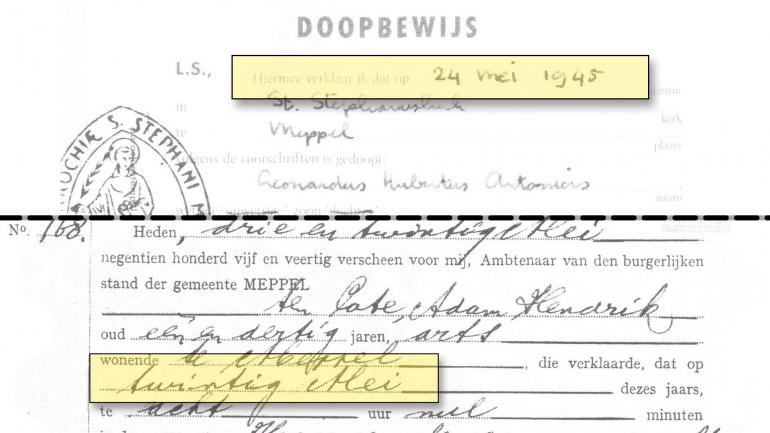 DOOPBEWIJS
L.S.,
Hiermee verklaar ik dat op 24 mei 1945
datum
in St.
kerk
te Meppel
plaats
volgens de voorschriften is gedoopt:
Leonardus Hubertus Antonius
naam
zoon
PAROCHIE S. STEPHANI M
No. 168. Heden, drie en twintig Mei
negentien honderd vijf en veertig verscheen voor mij, Ambtenaar van den burgerlijken
stand der gemeente MEPPEL
ten Cate, Adam Hendrik
oud een en dertig jaren, arts
wonende te Meppel, die verklaarde, dat op
twintig Mei dezes jaars,
te acht uur nul minuten